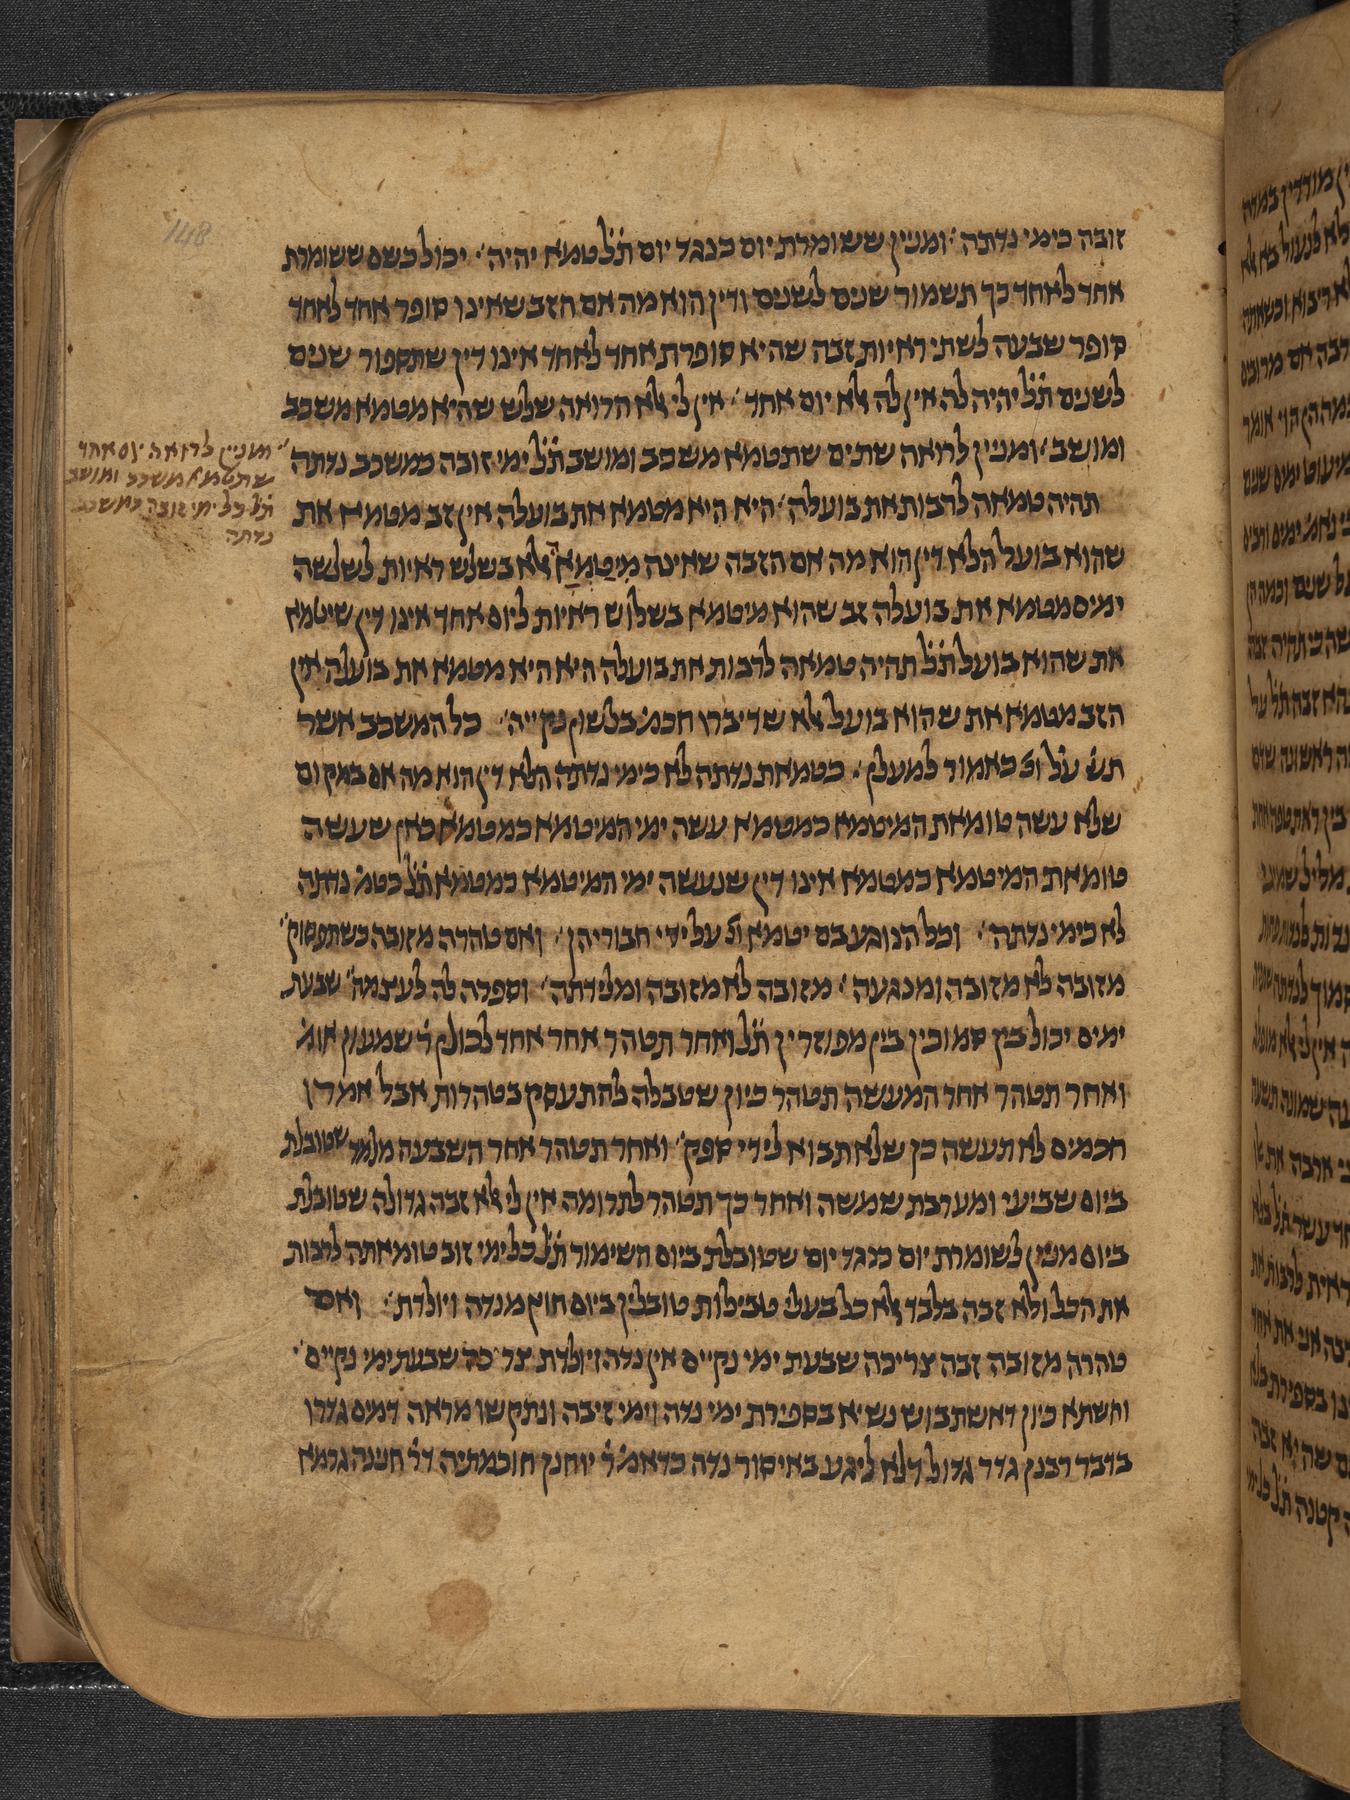 148
זובה כימי נדתה׳ ומניין ששומרת יום כנגד יום ת̇ל̇ טמא יהיה׳ יכול כשם ששומרת
אחד לאחד כך תשמור שנים לשנים ודין הוא מה אם הזב שאינו סופר אחד לאחד
סופר שבעה לשתי ראיות זבה שהיא סופרת אחד לאחד אינו דין שתספור שנים
לשנים ת̇ל̇ יהיה לה אין לה אלא יום אחד׳ אין לי אלא הרואה שלש שהיא מטמא משכב
ומושב׳ ומניין לרואה שתים שתטמא משכב ומושב ת̇ל̇ ימי זובה כמשכב נדתה
ומניין לרואה יום אחד
שתטמא משכב ומושב
ת̇ל̇ כל ימי זובה כמשכב
נדתה
תהיה טמאה לרבות את בועלה׳ היא היא מטמא את בועלה אין זב מטמא את
שהוא בועל הלא דין הוא מה אם הזבה שאינה מיטמא אלא בשלש ראיות לשלשה
ימים מטמא את בועלה זב שהוא מיטמא בשלוש ראיות ליום אחד אינו דין שיטמא
את שהוא בועל ת̇ל̇ תהיה טמאה לרבות את בועלה היא היא מטמא את בועלה אין
הזב מטמא את שהוא בועל אלא שדיברו חכמ׳ בלשון נקייה׳ כל המשכב אשר
תש׳ על וג׳ כאמור למעלן׳ כטמאת נדתה לא כימי נדתה הלא דין הוא מה אם במקום
שלא עשה טומאת המיטמא כמטמא עשה ימי המיטמא כמטמא כאן שעשה
טומאת המיטמא כמטמא אינו דין שנעשה ימי המיטמא כמטמא ת̇ל̇ כטמ׳ נדתה
לא כימי נדתה׳ וכל הנוגע בם יטמא וג׳ על ידי חבוריהן׳ ואם טהרה מזובה כשתפסוק׳
מזובה לא מזובה ומנגעה׳ מזובה לא מזובה ומלידתה׳ וספרה לה לעצמה׳ שבעת
ימים יכול בין סמוכין בין מפוזרין ת̇ל̇ ואחר תטהר אחר אחד לכולן ר׳ שמעון אומ׳
ואחר תטהר אחר המעשה תטהר כיון שטבלה להתעסק בטהרות אבל אמרו
חכמים לא תעשה כן שלא תבוא לידי ספק׳ ואחר תטהר אחר השבעה מלמד שטובלת
ביום שביעי ומערבת שמשה ואחר כך תטהר לתרומה אין לי אלא זבה גדולה שטובלת
ביום מניין לשומרת יום כנגד יום שטובלת ביום השימור ת̇ל̇ כל ימי זוב טומאתה לרבות
את הכל ולא זבה בלבד אלא כל בעלי טבילות טובלין ביום חוץ מנדה ויולדת׳ ואם
טהרה מזובה זבה צריכה שבעת ימי נקיים אין נדה ויולדת צריכה שבעת ימי נקיים׳
והשתא כיון דאשתבוש נשיא בספירת ימי נדה וימי זיבה ונתקשו מראה דמים גדרו
בדבר רבנן גדר גדול דלא ליגע באיסור נדה כדאמ׳ ר׳ יוחנן חוכמתיה דר׳ חנינה גרמא